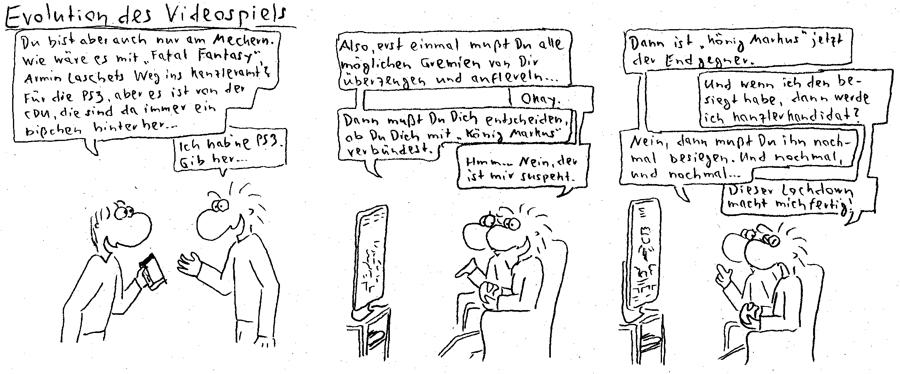 Evolution des Videospiels
Du bist aber auch nur am Meckern.
Wie wäre es mit „Fatal Fantasy",
Armin Laschets Weg ins Kanzleramt?
Für die PS3, aber es ist von der
CDU, die sind da immer ein
bißchen hinterher...
Ich hab'ne PS3.
Gib her...
Also, erst einmal mußt Du alle
möglichen Gremien von Dir
überzeugen und aufleveln...
Okay.
Dann mußt Du Dich entscheiden,
ob Du Dich mit „König Markus"
verbündest.
Hmm... Nein, der
ist mir suspekt.
Dann ist „König Markus" jetzt
der Endgegner.
Und wenn ich den be-
siegt habe, dann werde
ich Kanzlerkandidat?
Nein, dann mußt Du ihn noch-
mal besiegen. Und nochmal,
und nochmal...
Dieser Lockdown
macht mich fertig!